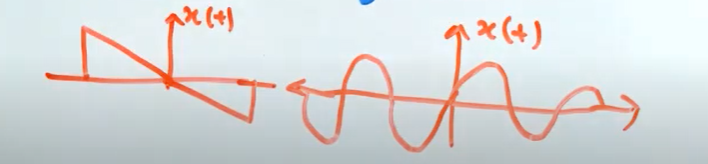 x(t)
x(t)